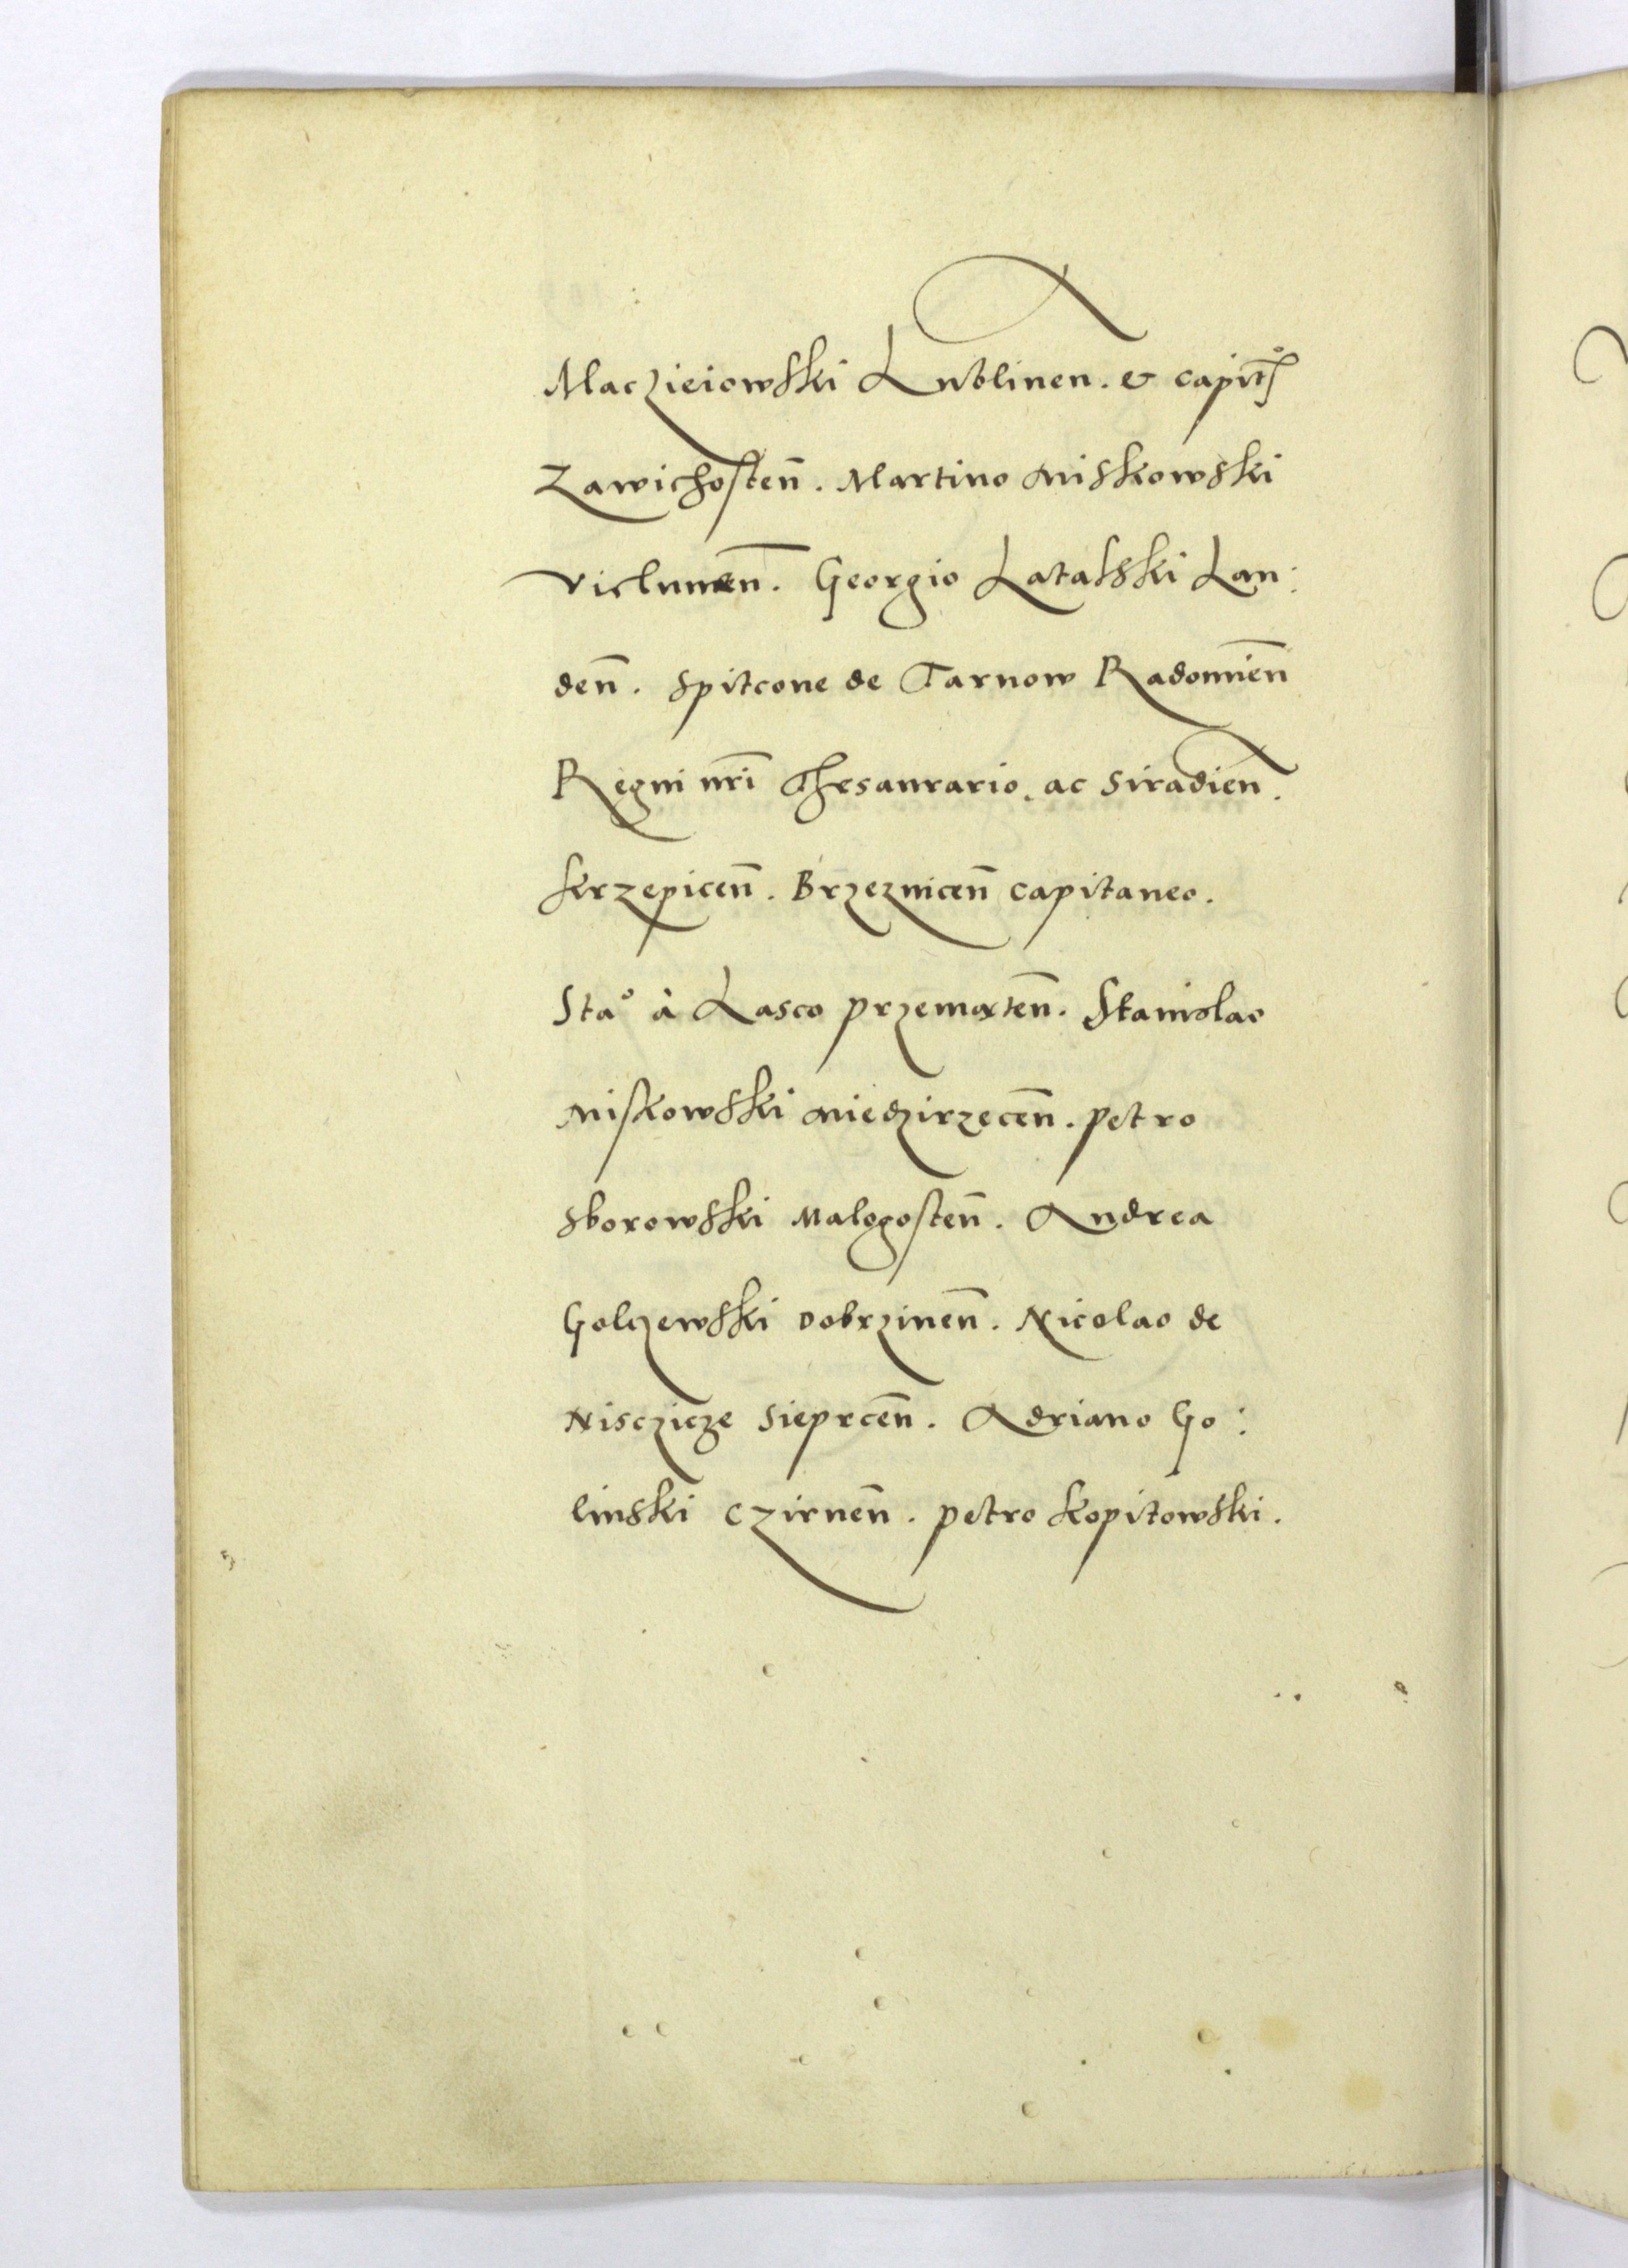 Maczieiowski Lublinen. & capit°
Zawichosten̄. Martino Miskowski
Vielunen̄. Georgio Latalski Lan:
den̄. Spitcone de Tarnow Radomien̄
Regni nr̄i Thesaurario. ac Siradien̄.
Krzepicen̄. Brzeznicen̄ Capitaneo.
Sta° à Lasco przemeten̄. Stanislao
Miskowski Miedzirzecen̄. Petro
Sborowski Malogosten̄. Andrea
Golczewski Dobrzinen̄. Nicolao de
Nisczicze Sieprcen̄. Adriano Go:
linski Czirnen̄. Petro Kopitowski.